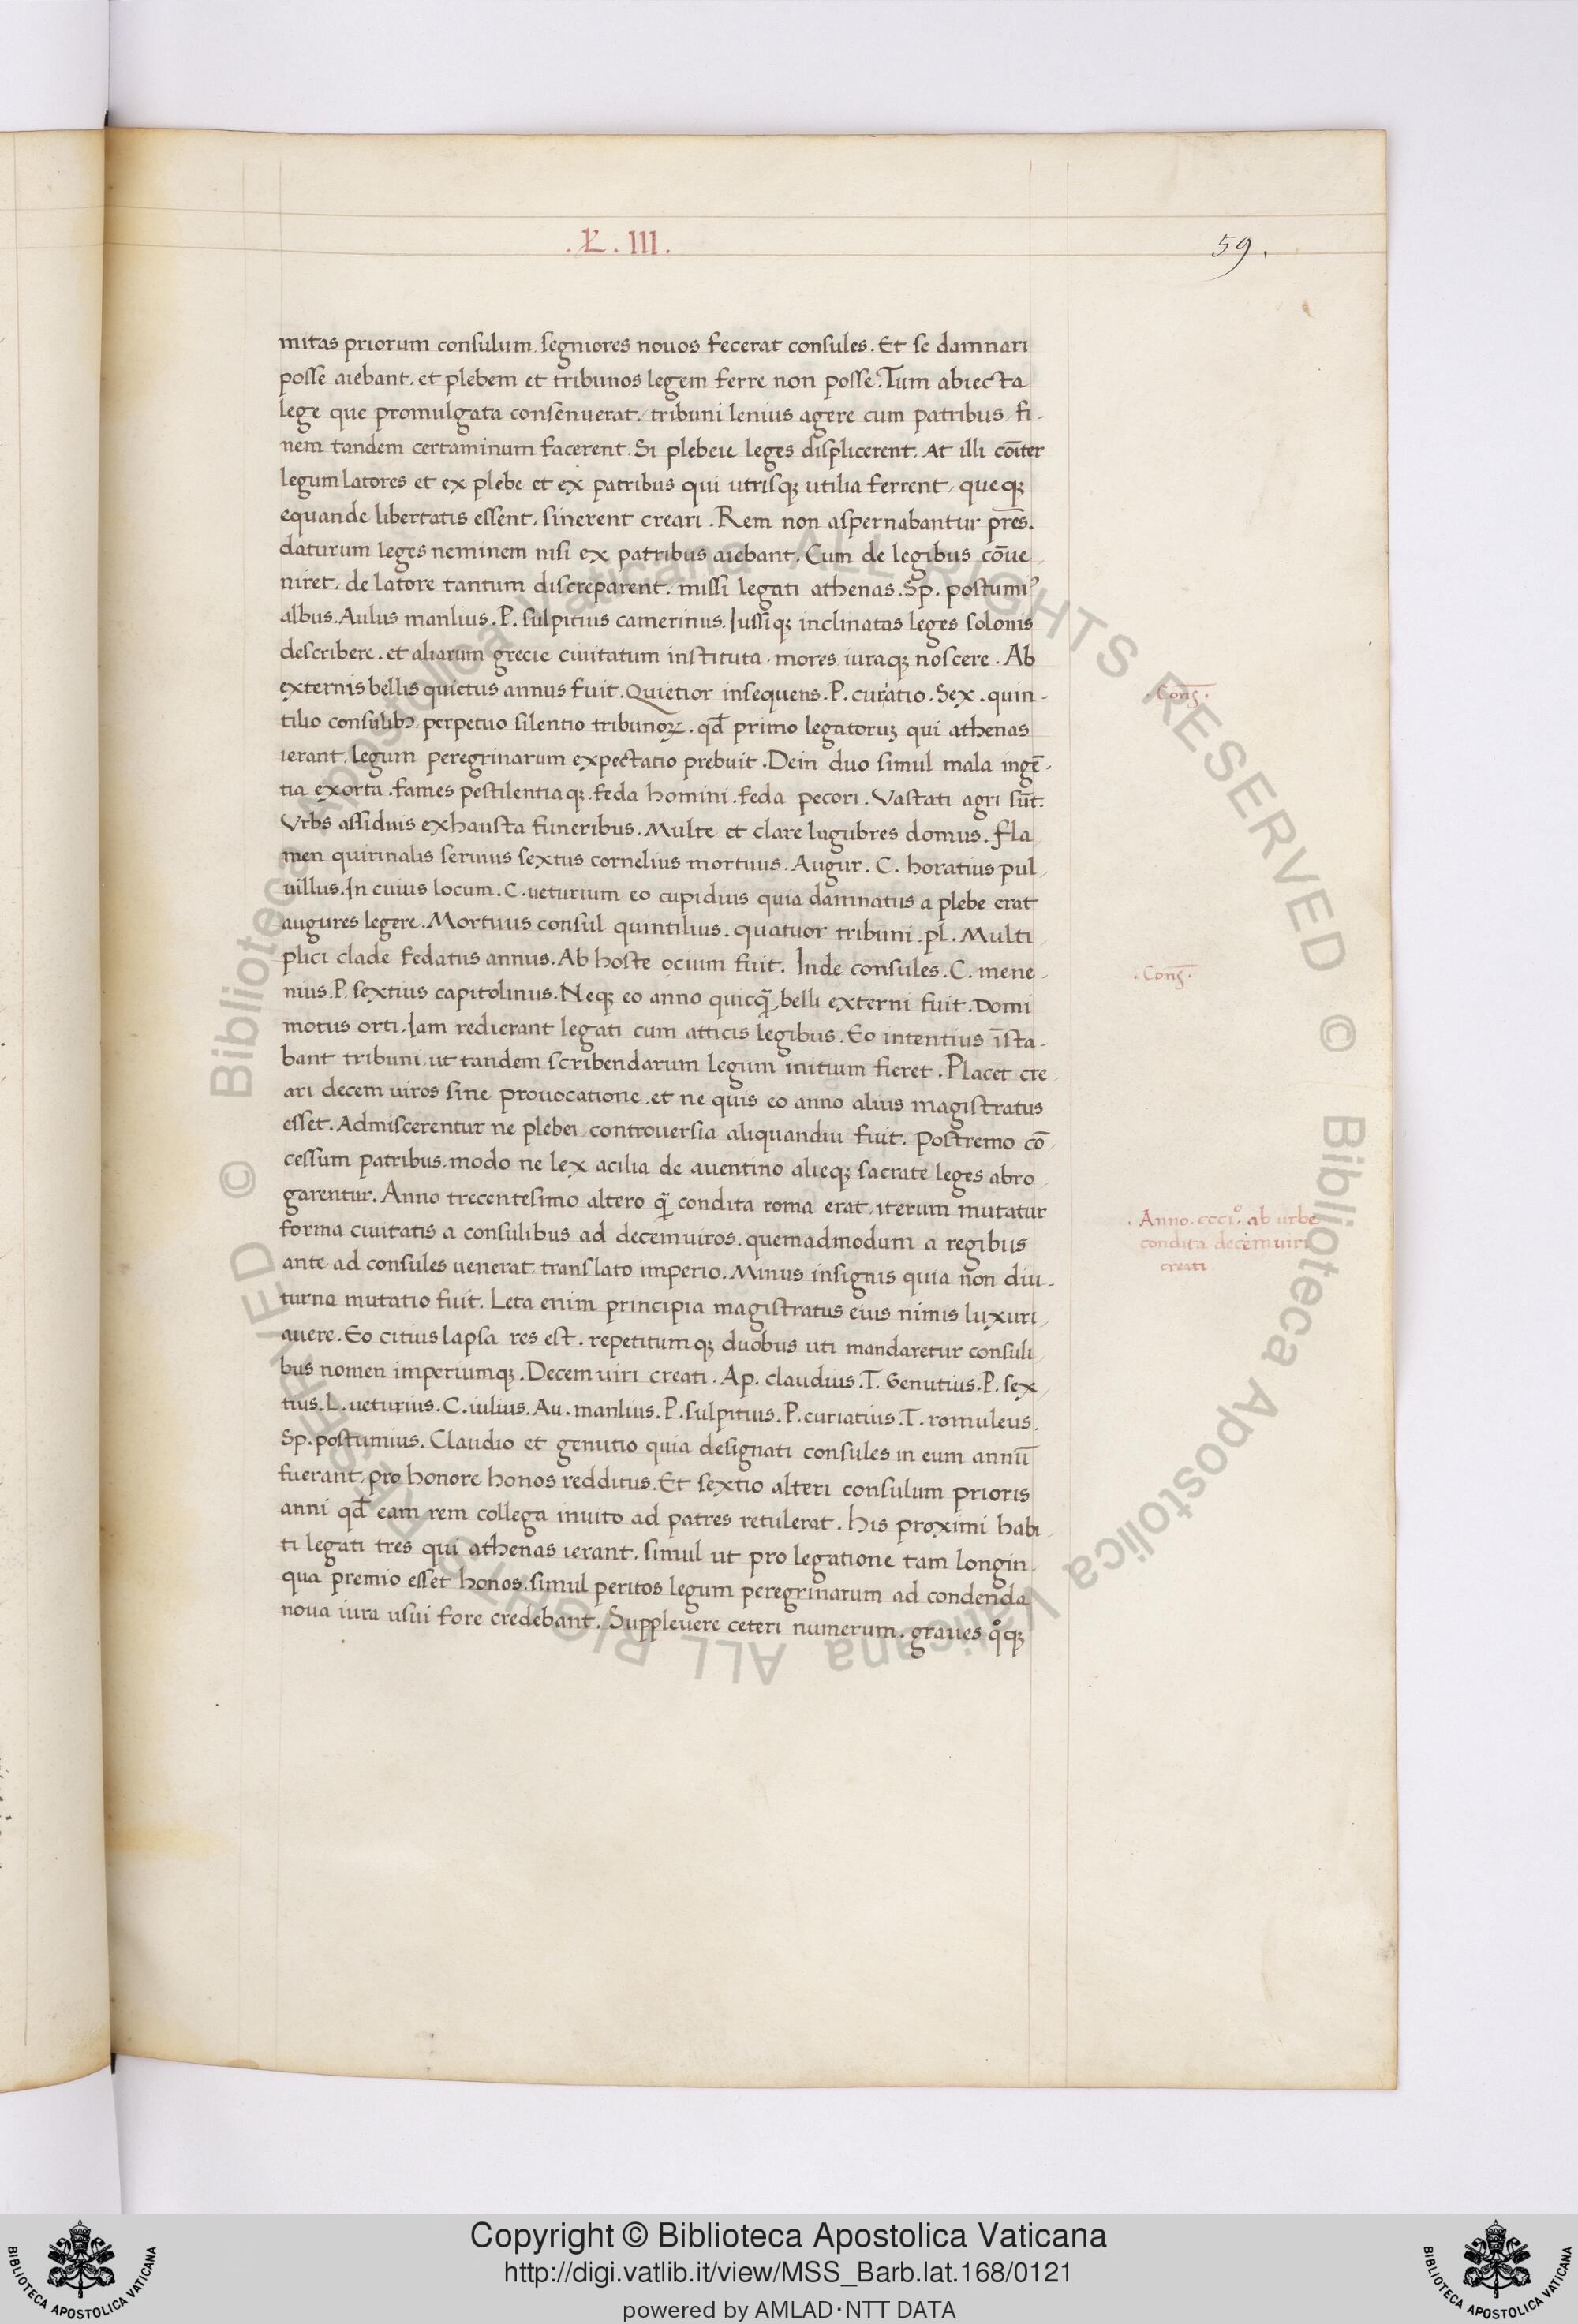 .L. III.
59.
mitas priorum consulum. segniores nouos fecerat consules. Et se damnari
posse aiebant. et plebem et tribunos legem ferre non posse. Tum abiecta
lege que promulgata consenuerat. tribuni lenius agere cum patribus. fi-
nem tandem certaminum facerent. Si plebeie leges displicerent. At illi cōiter
legum latores et ex plebe et ex patribus qui utrisqꝫ utilia ferrent. queqꝫ
equande libertatis essent. sinerent creari. Rem non aspernabantur p̄res.
daturum leges neminem nisi ex patribus aiebant. Cum de legibus cōue
niret. de latore tantum discreparent. missi legati athenas. Sp. postumiꝰ
albus. Aulus manlius. P. sulpitius camerinus. Iussiqꝫ inclinatas leges solonis
describere. et aliarum grecie ciuitatum instituta. mores. iuraqꝫ noscere. Ab
externis bellis quietus annus fuit. Quietior insequens. P. curiatio. Sex. quin-
. Cons̄.
tilio consulibꝫ. perpetuo silentio tribunoꝝ. qđ primo legatoruꝫ qui athenas
ierant. legum peregrinarum expectatio prebuit. Dein duo simul mala ingē-
tia exorta. fames pestilentiaqꝫ. feda homini. feda pecori. Vastati agri sūt.
Vrbs assiduis exhausta funeribus. Multe et clare lugubres domus. fla
men quirinalis seruius sextus cornelius mortuus. Augur. C. horatius pul
uillus. In cuius locum. C. ueturium eo cupidius quia damnatus a plebe erat
augures legere. Mortuus consul quintilius. quatuor tribuni. pl. Multi
plici clade fedatus annus. Ab hoste ocium fuit. Inde consules. C. mene
. Cons̄.
nius. P. sextius capitolinus. Neqꝫ eo anno quicq̄ belli externi fuit. Domi
motus orti. Iam redierant legati cum atticis legibus. Eo intentius īsta-
bant tribuni. ut tandem scribendarum legum initium fieret. Placet cre
ari decem uiros sine prouocatione. et ne quis eo anno alius magistratus
esset. Admiscerentur ne plebei. controuersia aliquandiu fuit. Postremo cō
cessum patribus. modo ne lex acilia de auentino alieqꝫ sacrate leges abro
garentur. Anno trecentesimo altero q̄ condita roma erat. iterum mutatur
. Anno. ccciº. ab urbe
condita decemuiri
creati
forma ciuitatis a consulibus ad decemuiros. quemadmodum a regibus
ante ad consules uenerat. translato imperio. Minus insignis quia non diu-
turna mutatio fuit. Leta enim principia magistratus eius nimis luxuri
auere. Eo citius lapsa res est. repetitumqꝫ duobus uti mandaretur consuli
bus nomen imperiumqꝫ. Decemuiri creati. Ap. claudius. T. Genutius. P. sex
tius. L. ueturius. C. iulius. Au. manlius. P. sulpitius. P. curiatius. T. romuleus.
Sp. postumius. Claudio et genutio quia designati consules in eum annū
fuerant. pro honore honos redditus. Et sextio alteri consulum prioris
anni qđ eam rem collega inuito ad patres retulerat. His proximi habi
ti legati tres qui athenas ierant. simul ut pro legatione tam longin
qua premio esset honos. simul peritos legum peregrinarum ad condenda
noua iura usui fore credebant. Suppleuere ceteri numerum. graues qͦqꝫ
© Biblioteca Apostolica Vaticana ALL RIGHTS RESERVED © Biblioteca Apostolica Vaticana ALL RIGHTS RESERVED
Copyright © Biblioteca Apostolica Vaticana
http://digi.vatlib.it/view/MSS_Barb.lat.168/0121
powered by AMLAD·NTT DATA
BIBLIOTECA APOSTOLICA VATICANA
BIBLIOTECA APOSTOLICA VATICANA